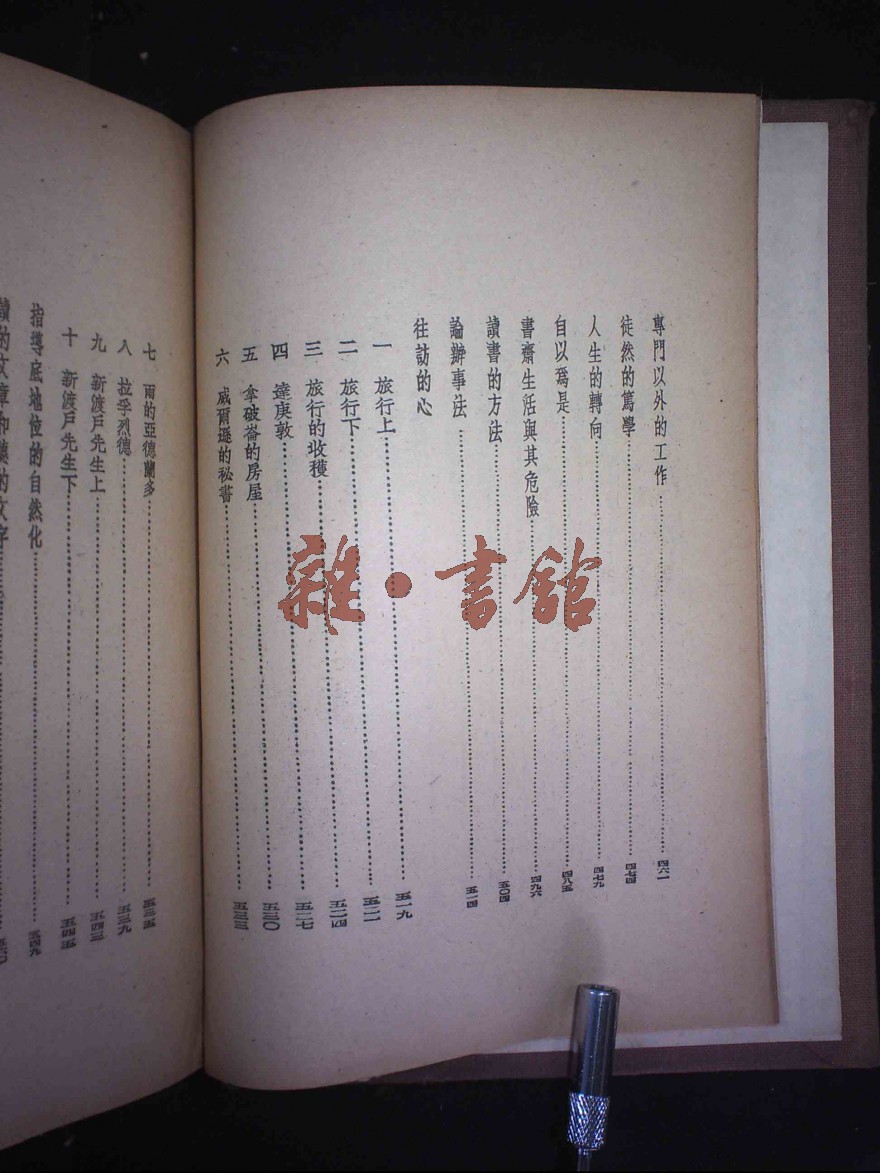 專門以外的工作 四六一
徒然的篤學 四七四
人生的轉向 四七九
自以爲是 四八五
書齋生活與其危險 四九六
讀書的方法 五〇四
論辦事法 五一四
往訪的心
一 旅行上 五一九
二 旅行下 五二一
三 旅行的收穫 五二四
四 達庚敦 五二七
五 拿破崙的房屋 五三〇
六 威爾遜的秘書 五三三
七 雨的亞德蘭多 五三五
八 拉孚烈德 五三九
九 新渡戶先生上 五四三
十 新渡戶先生下 五四五
指導底地位的自然化 五四九
讀的文章和聽的文字
雜·書館